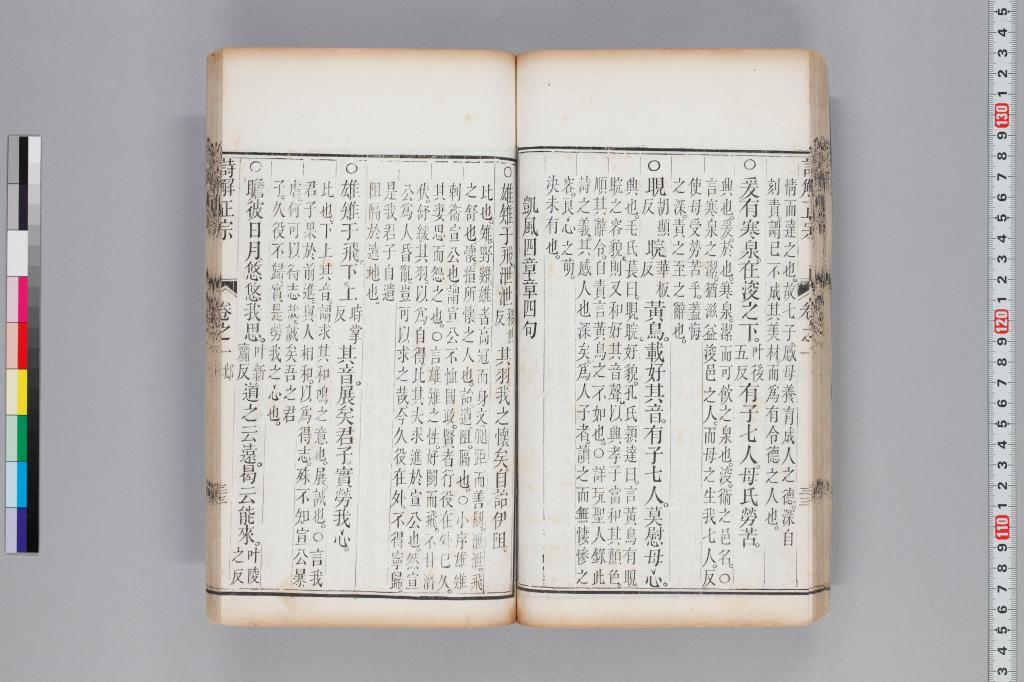 情而達之也。故七子感母養育成人之德。深自
刻責謂已不成其美材而爲有令德之人也。
○爰有寒泉。在浚之下。叶後五反有子七人。母氏勞苦。
興也。爰於也。寒泉潔而可飲之泉也。浚。衛之邑名。○
言寒泉之潔猶滋益浚邑之人。而母之生我七人。反
使母受勞苦乎。蓋悔
之深責之至之辭也。
○睍胡顯反睆華板反黃鳥。載好其音。有子七人。莫慰母心。
興也。毛氏萇曰。睍睆。好貌。孔氏頴達曰。言黃鳥有睍
睆之容貌。則又和好其音聲。以興孝子當和其顏色。
順其辭令。自責言黃鳥之不如也。○詳玩聖人錄此
詩之義。其感人也深矣。爲人子者。讀之而無悽慘之
容。良心之萌。
決未有也。
凱風四章章四句
○雄雉于飛。泄泄移世反其羽。我之懷矣。自詒伊阻。
比也。雉。野雞。雄者高冠而身文。腿距而善鬬。泄泄飛
之舒也。懷指所懷之人也。詒遺。阻隔也。○小序。雄雉
刺衛宣公也。謂宣公不恤國政。賢者行役在外已久。
其妻思而怨之也。○言雄雉之性。好鬬而飛。不甘潛
伏。舒緩其羽。以爲自得。比其夫求進於宣公也。然宣
公爲人昏亂。豈可以求之哉。今久役在外。不得寧歸。
是我君子自遺
阻隔於遠地也。
○雄雉于飛。下上時掌反其音。展矣君子。實勞我心。
比也。下上其音。謂求其和鳴之意也。展。誠也。○言我
君子果於前進。與人相和。以爲得志。殊不知宣公暴
虐。何可以得志哉。誠矣吾之君
子。久役不歸。實是勞我之心也。
○瞻彼日月。悠悠我思。叶新齎反道之云遠。曷云能來。叶陵之反
詩解正宗 卷之一 邶